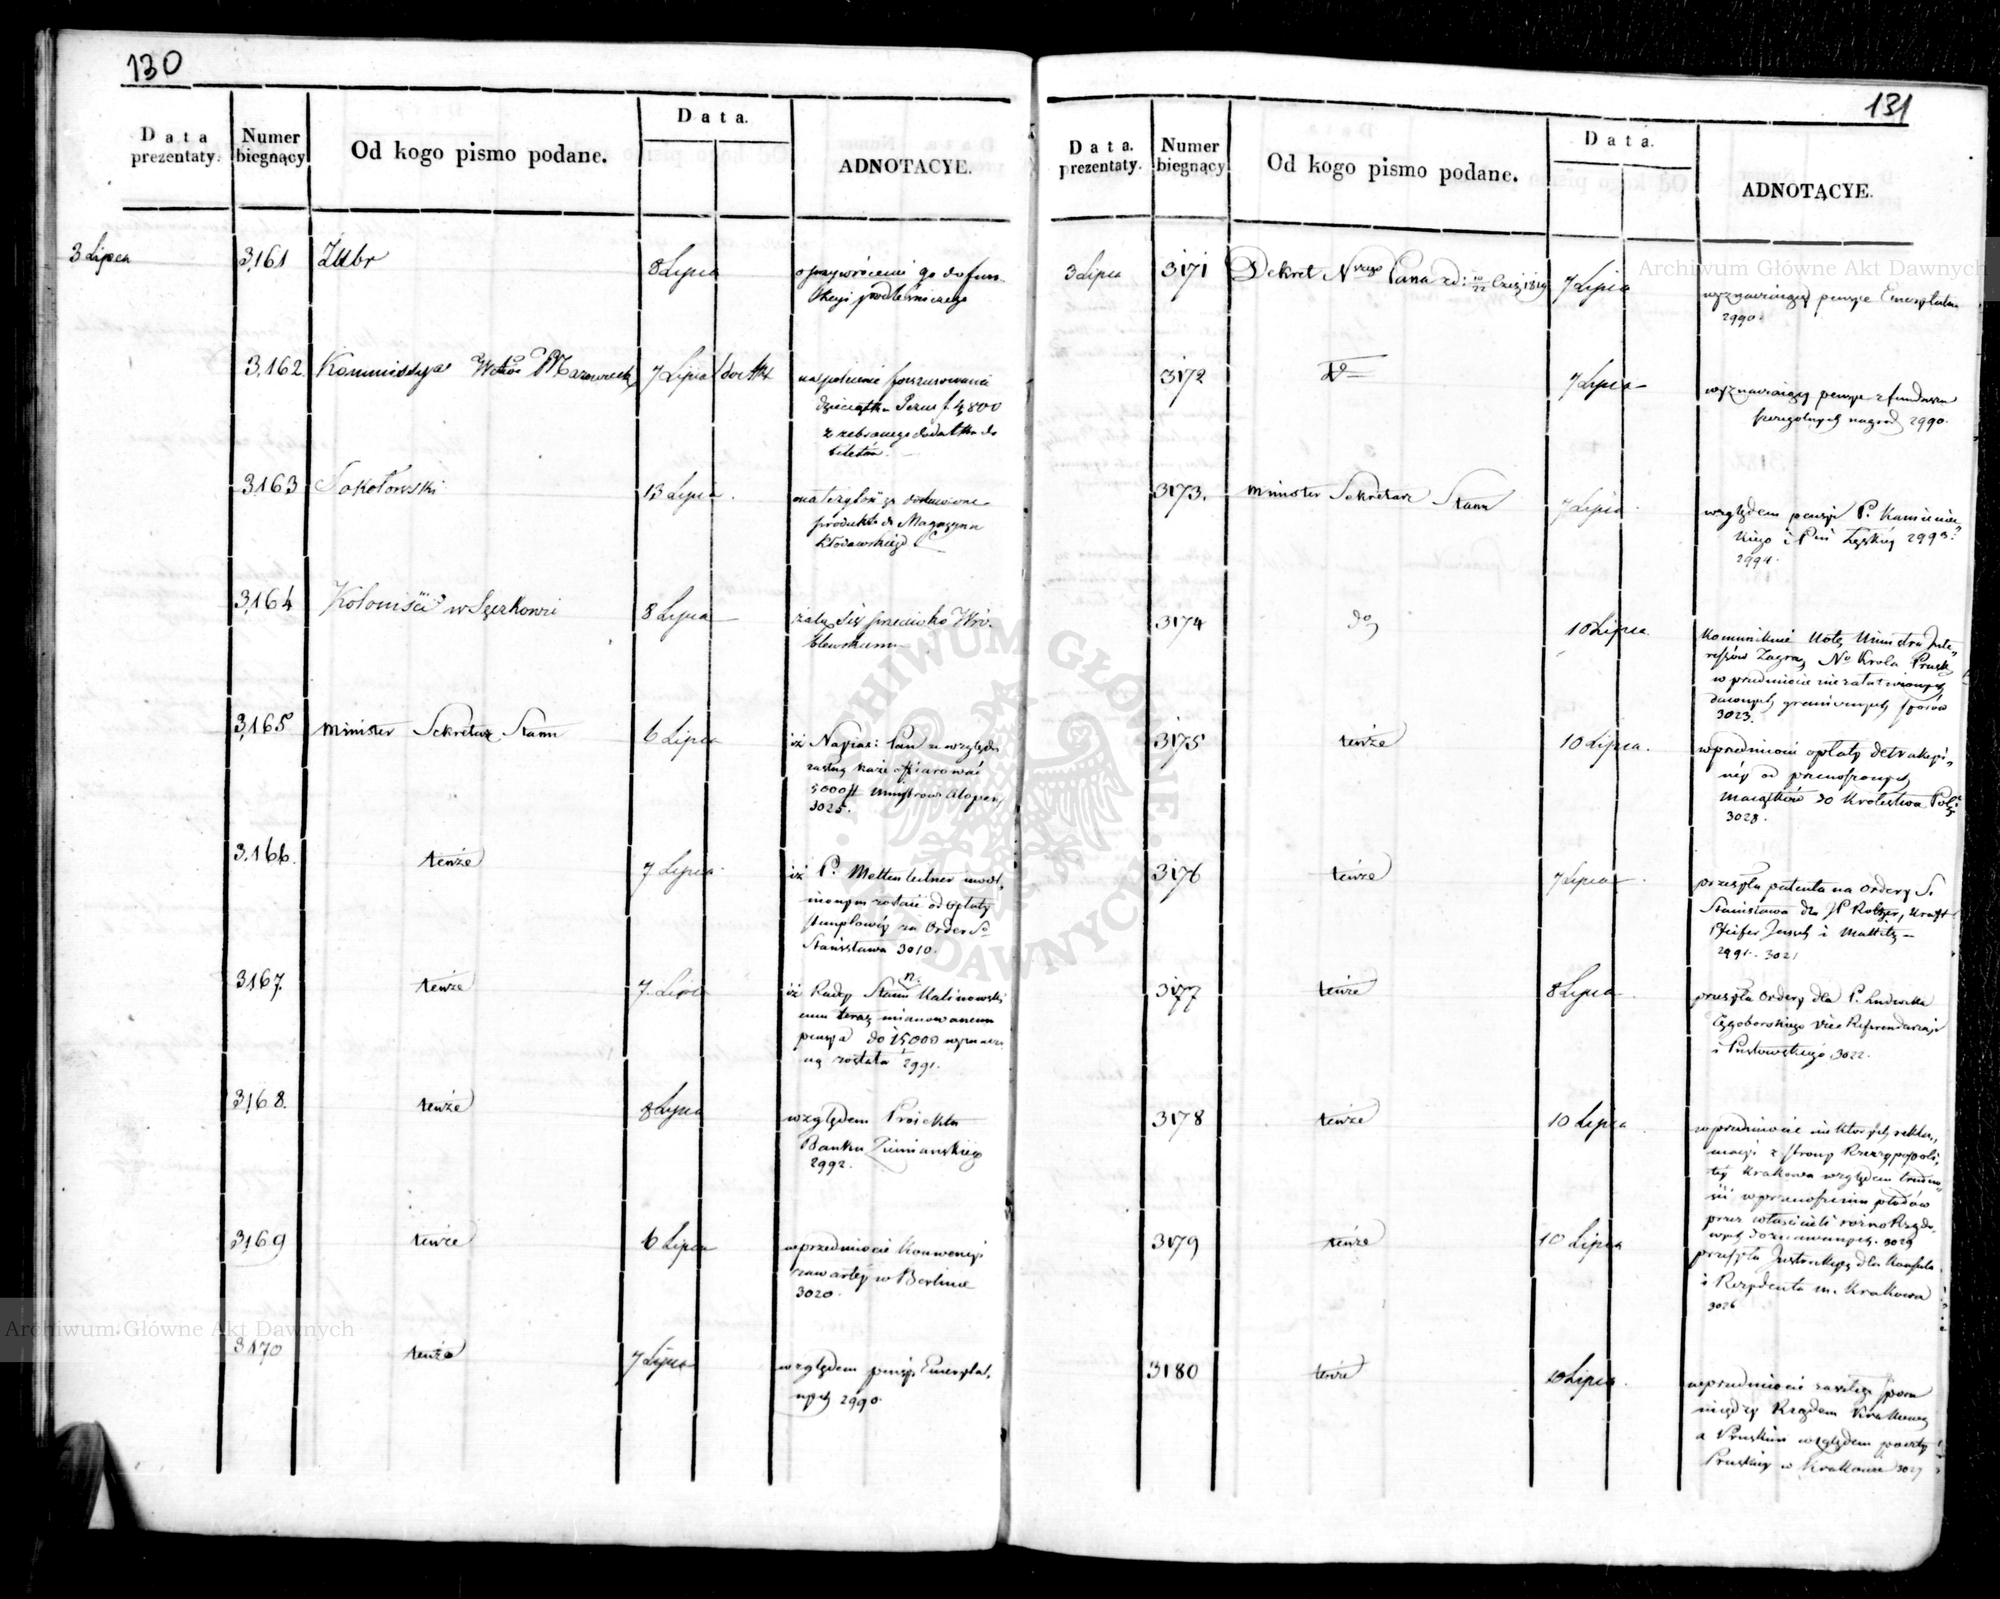 130
Data prezentaty.
Numer biegnący
Od kogo pismo podane.
Data.
ADNOTACYE.
3 Lipca 3,161 Żubr 8 Lipca o przywrócenie go do fun-
kcyi podleśniczego
3,162. Kommissya Wdtwa Mazowieck 7 Lipca
na polecenie forszusowania
4,800
z zebranego dodatku do
biletów.
3,163 Sokołowski 13 Lipca.
dostawione
produkta do Magazynu
Kłodawskiego
3,164 Koloniści w 8 Lipca
żalą się przeciwko Wró-
blewskiemu
3,165 Minister Sekretarz Stanu 6 Lipca
iż Najjaś: Pan ze względu
zasług każe ofiarować
5000 #
3025.
3,166. tenże 7 Lipca
iż P. Mettenleitner uwol-
nionym zostaie od opłaty
stemplowéy za Order S°
Stanisława 3010.
3167. tenże 7. Lipca
iż Radcy Stanu n. Kalinowski
emu teraz mianowanemu
pensya do 15000 wyznaczo
ną została 2991.
3,168. tenże 8 Lipca
względem Proiektu
Banku Ziemiańskiego
2992.
3,169 tenże 6 Lipca
w przedmiocie Konwencyi
zawartéy w Berlinie
3020.
3170 tenże 7 Lipca
względem pensyi Emerytal-
nych 2990.
131
Data. prezentaty.
Numer biegnący
Od kogo pismo podane.
Data.
ADNOTACYE.
3 Lipca 3171 Dekret N Pana zd: 10/22 Czer 1819 7 Lipca
wyznaczaiący pensye Emerytalne
2990.
3172 7 Lipca
wyznaczaiący pensye z funduszu
szczególnych nagród 2990.
3173. Minister Sekretarz Stanu 7 Lipca
względem pensyi P. Kamienie-
kiego i Pni Łęskiey 2993.
2994.
3174 do 10 Lipca.
Kommunikuie Notę Ministra Inte-
ressów Zagra Nº Krola Prusk
w przedmiocie niezałatwionych
dawnych granicznych sporów
3023.
3175 tenże 10 Lipca.
w przedmiocie opłaty detrakcyi-
néy od przenoszonych
maiątków do Królestwa Pols
3028.
3176 tenże 7 Lipca
przesyła patenta na Ordery S.
Stanisława dla
2991. 3021
3177 tenże 8 Lipca
przesyła Ordery dla P. Ludwika
Tęgoborskiego Vice Referendarza
i Pusłowskiego 3022.
3178 tenże 10 Lipca
w przedmiocie niektórych rekla-
macyi z strony Rzeczypospoli-
téy Krakowa względem trudno-
ści w przenoszeniu płodów
przez właścicieli różno Rządo-
wych doznawanych. 3029
3179 tenże 10 Lipca
przesyła Instrukcyą dla Konsula
i Rezydenta m. Krakowa
3026
3180 tenże 10 Lipca.
w przedmiocie zaszłego sporu
między Rządem Krakows
a Pruskim względem poczty
Pruskiéy w Krakowie 3027
Archiwum Główne Akt Dawnych
Archiwum Główne Akt Dawnych
ARCHIWUM GŁÓWNE AKT DAWNYCH